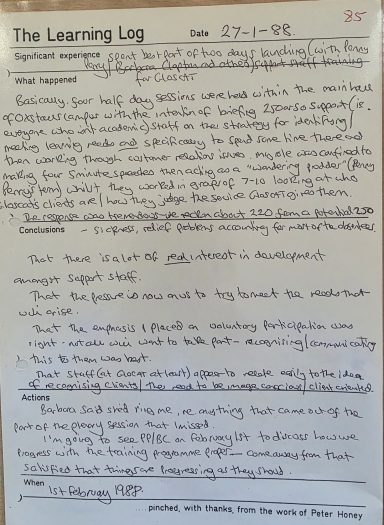 85
The Learning Log Date 27-1-88.
Significant experience spent best part of two days launching (with Penny
Perry/Barbara Clapton and others) support staff training
What happened for Gloscat
Basically four half day sessions were held within the main hall
of Oxstalls campus with the intention of briefing 250 or so support (ie.
everyone who isn't academic) staff on the strategy for identifying/
meeting learning needs and specifically to spend some time there and
then working through customer relation issues. My role was confined to
making four 5 minute speeches then acting as a "wandering prodder" (Penny
Penny's term) whilst they worked in groups of 7-10 looking at who
Gloscat's clients are/how they judge the service Gloscat gives them.
The response was tremendous - we reckon about 220 from a potential 250
Conclusions - sickness, relief problems accounting for most of the absentees.
That there is a lot of real interest in development
amongst support staff.
That the pressure is now on us to try to meet the needs that
will arise.
That the emphasis I placed on voluntary participation was
right - not all will want to take part - recognising/communicating
this to them was best.
That staff (at Gloscat at least) appear to relate easily to the idea
of recognising clients/they need to be image conscious/client oriented
Actions
Barbara said she'd ring me, re anything that came out of the
part of the plenary session that I missed.
I'm going to see PP/BC on February 1st to discuss how we
progress with the training programme proper - come away from that
satisfied that things are progressing as they should.
When 1st February 1988.
...pinched, with thanks, from the work of Peter Honey